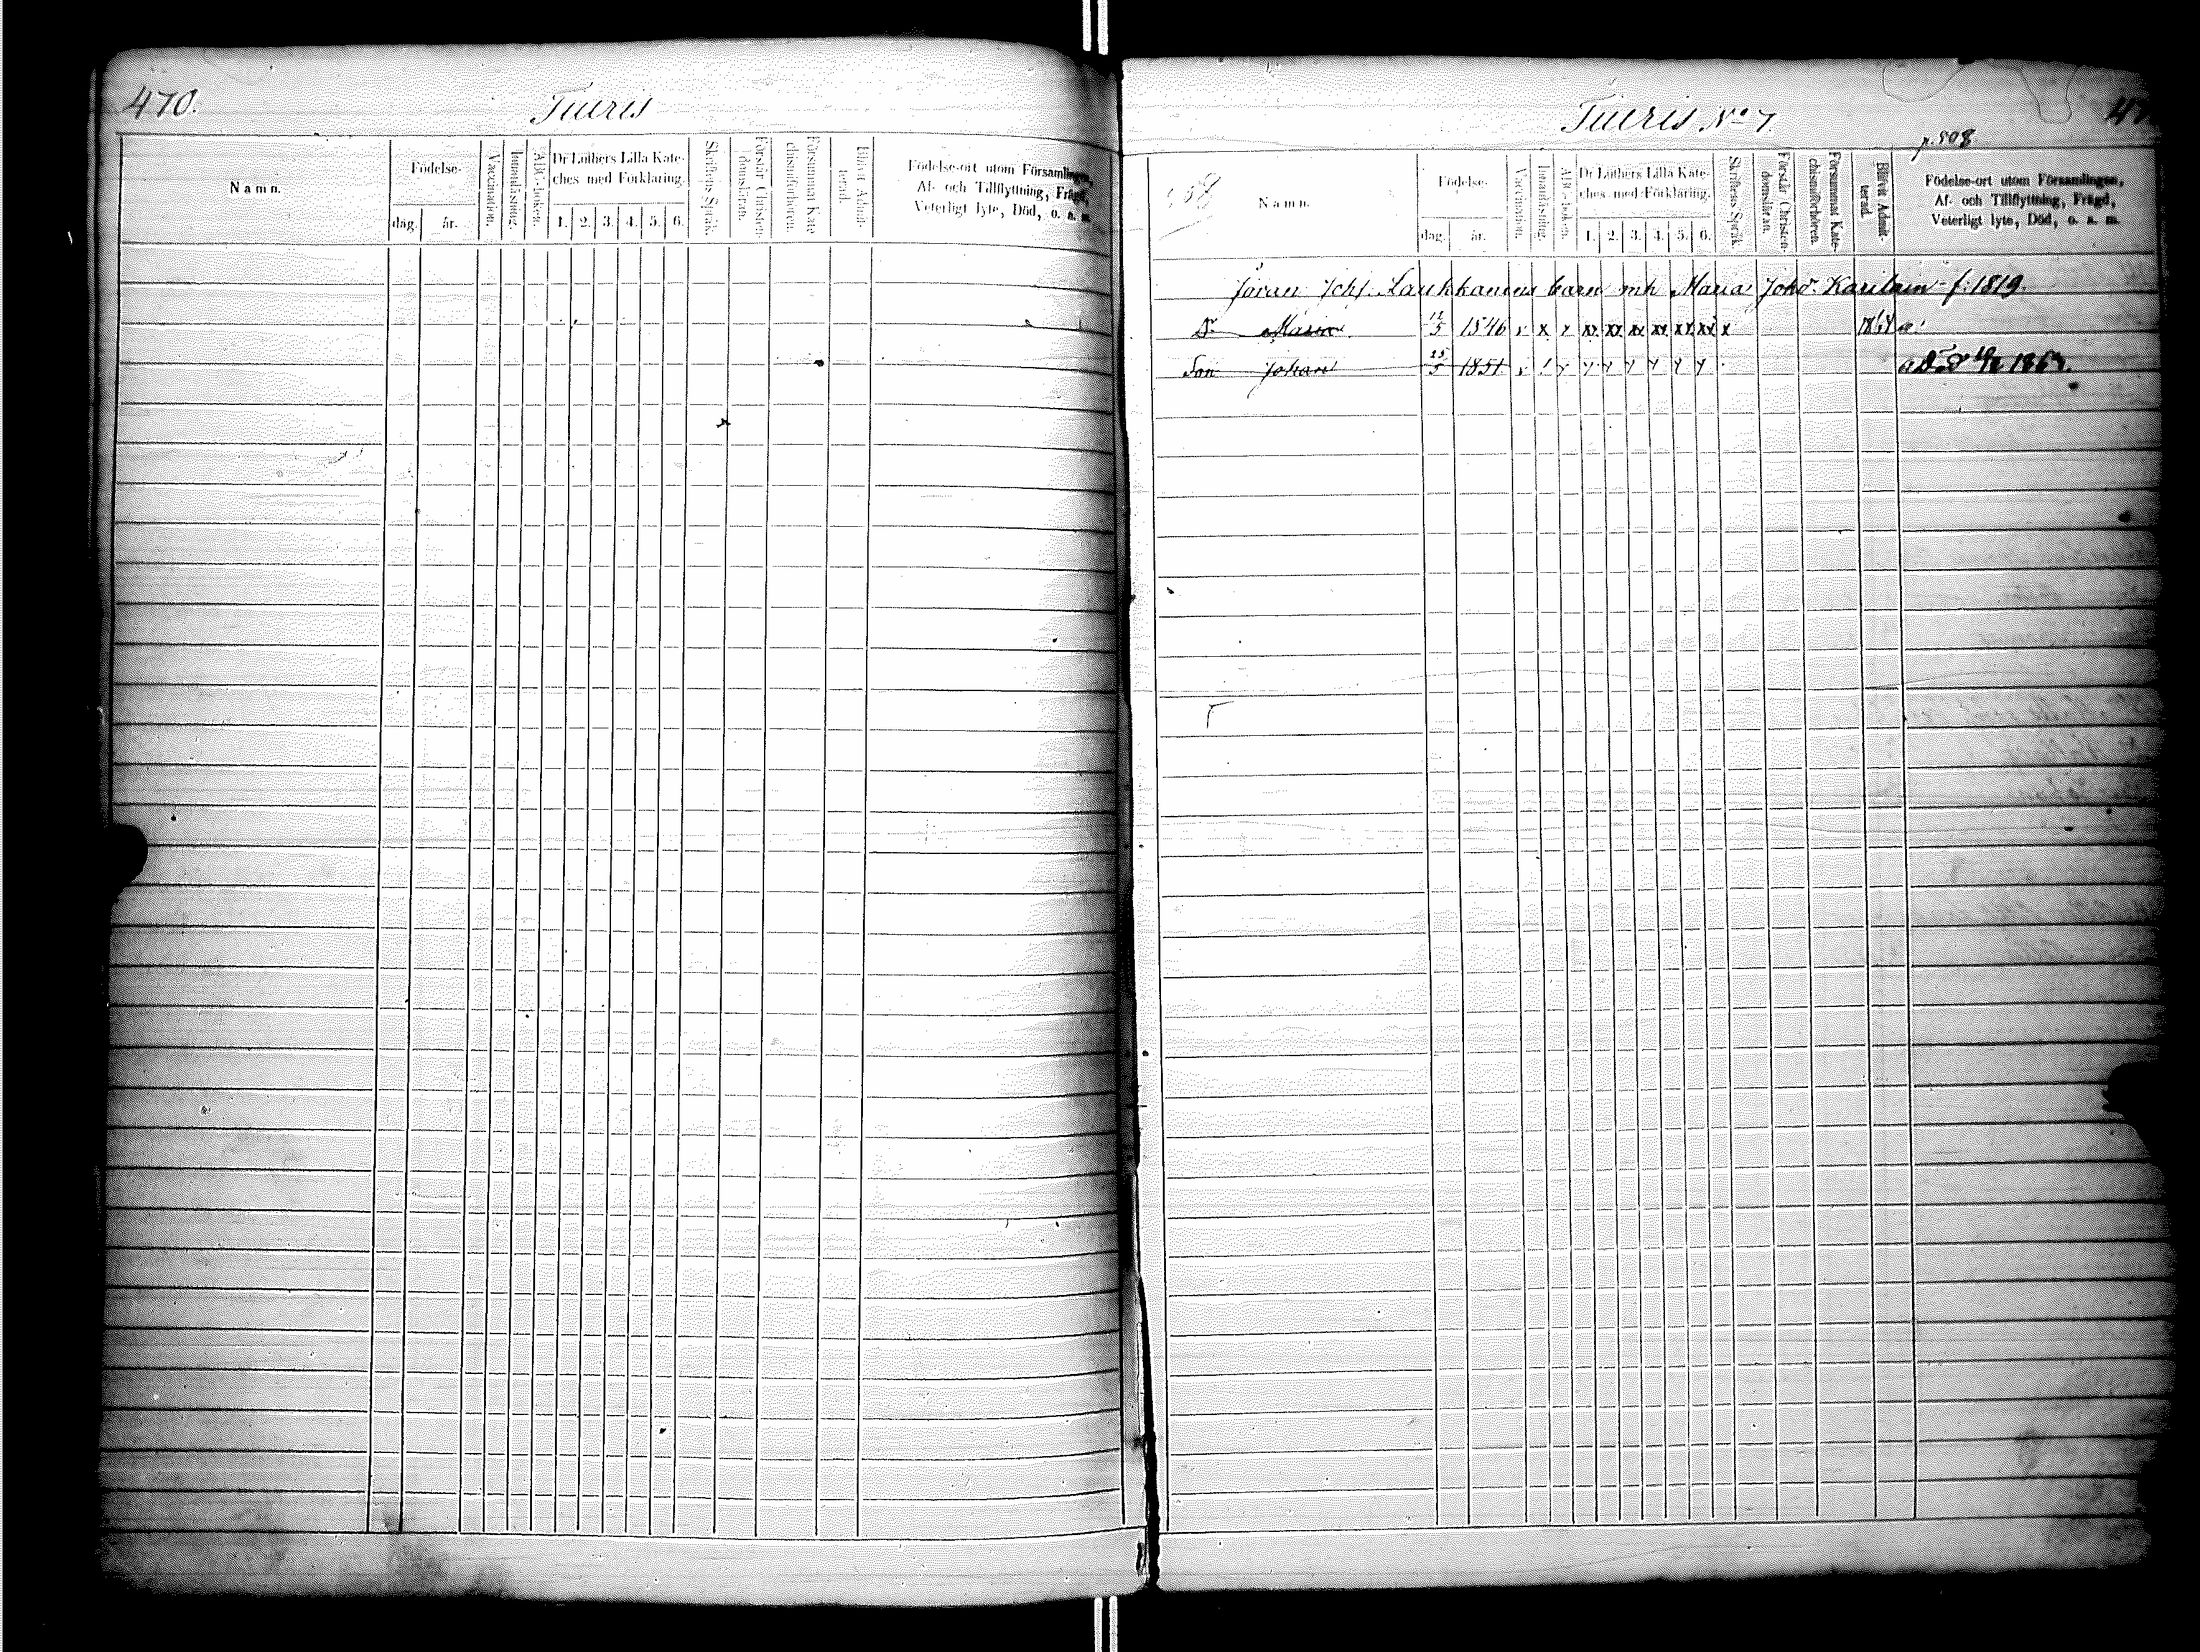 470.
Tiuris
Namn.
Födelse-
dag.
år.
Vaccination.
Innanläsning.
ABC-boken.
Dr Luthers Lilla Kate-
ches med Förklaring.
1. 2. 3. 4. 5. 6.
Skriftens Språk.
Förstår Christen-
domsläran.
Försummat Kate-
chismiförhören.
Blifvit Admit-
terad.
Födelse-ort utom Församlingen,
Af- och Tillflyttning, Frägd,
Veterligt lyte, Död, o. s. m.
Tiuris No 7.
47
p. 508
Namn.
Födelse-
dag.
år.
Vaccination.
Innanläsning.
ABC-boken.
Dr Luthers Lilla Kate-
ches med Förklaring.
1. 2. 3. 4. 5. 6.
Skriftens Språk.
Förstår Christen-
domsläran.
Försummat Kate-
chismiförhören.
Blifvit Admit-
terad.
Födelse-ort utom Församlingen,
Af- och Tillflyttning, Frägd,
Veterligt lyte, Död, o. s. m.
Göran Laukkanens barn mh Maria f. 1819.
Dr 12/5 1846 v x x xx xx xx xx xx xx x
Son Johan 25/5 1851